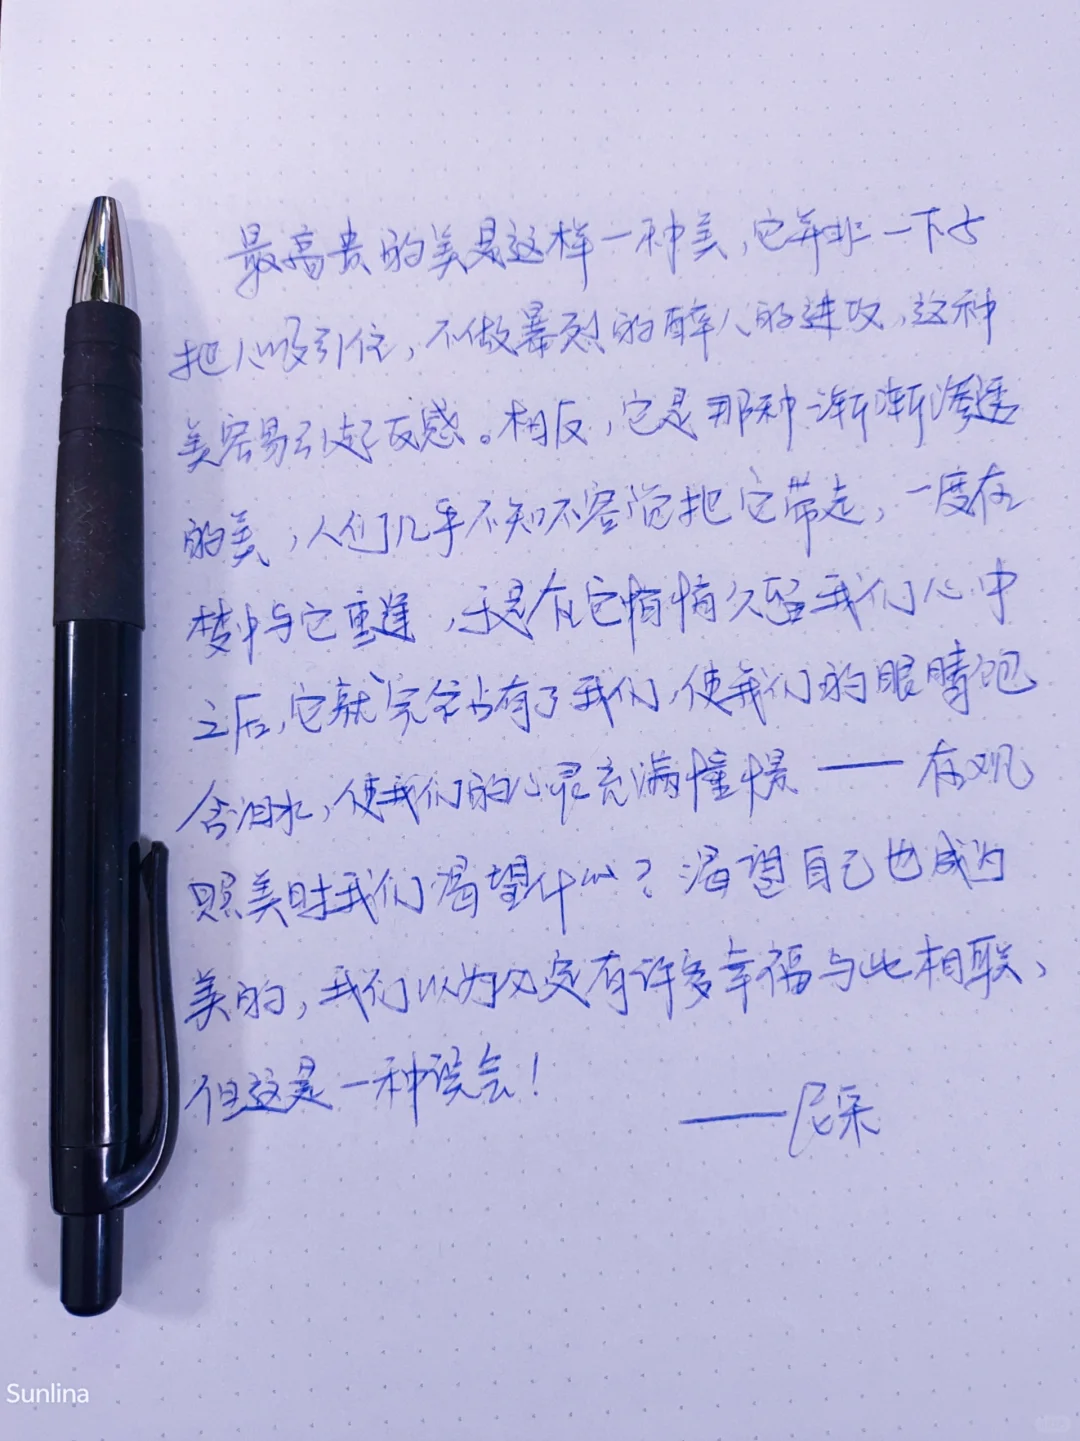 最高贵的美是这样一种美，它并非一下子
把人吸引住，不做暴烈的醉人的进攻，这种
美容易引起反感。相反，它是那种渐渐渗透
的美，人们几乎不知不容觉把它带走，一度在
梦中与它重逢，于是在它悄悄久留我们心中
之后，它就完全占有了我们，使我们的眼睛饱
含泪水，使我们的心灵充满憧憬——在观
照美时我们渴望什么？渴望自己也成为
美的，我们以为必定有许多幸福与此相联、
但这是一种误会！
——尼采
Sunlina